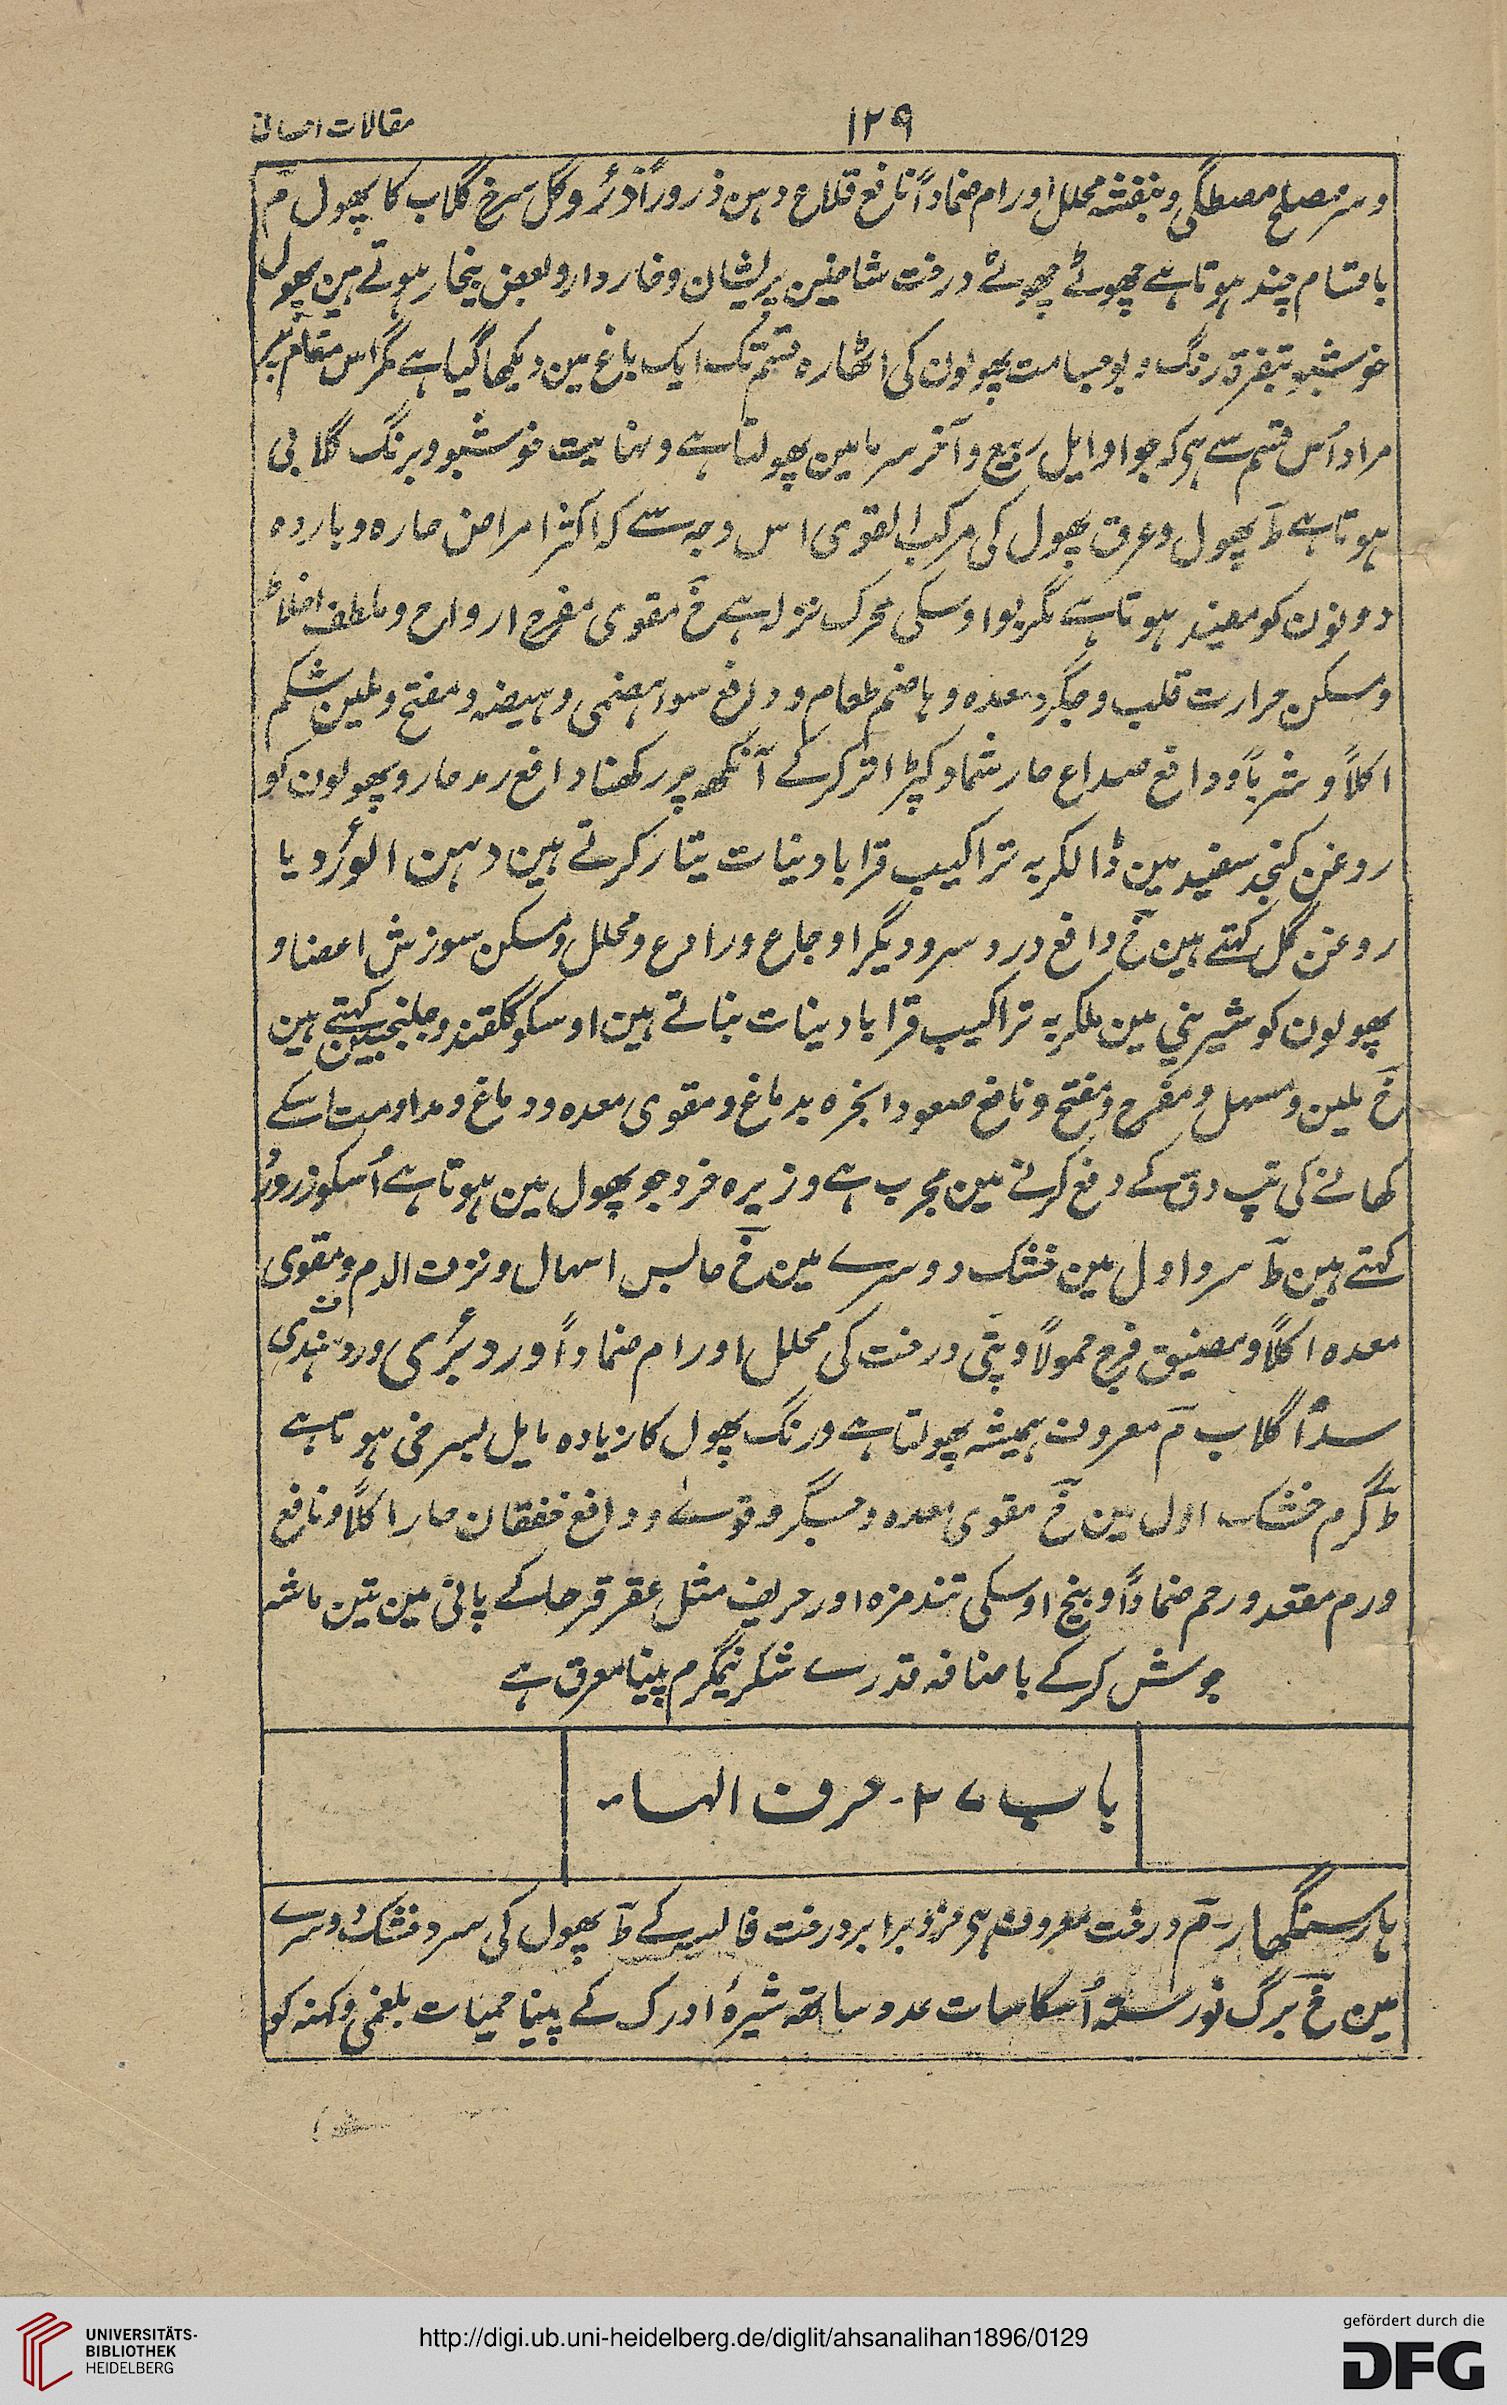 ۱۲۹
مقالات احسانی
و سر مصلح مصطگی و بنفشہ محلل اورام ضماداً نافع قلاع دہن ذروراً وگل سرخ گلاب کا پھول مؔ
باقسام چند ہوتا ہے چھوٹے چھوٹے درخت شاخین پریشان و خاردار و بعض بیخار ہوتے ہین پھول
خوشبو بتفرق رنگ و بو جسامت پھولون کی اٹھارہ قسم تک ایک باغ مین دیکھا گیا ہے مگر اس مقام پر
مراد اُس قسم سے ہی کہ جو اوایل ربیع و آخر سرما مین پھولتا ہے و نہایت خوشبو و برنگ گلابی
ہوتا ہے طؔ پھول و عرق پھول کی مرکب القوی اس وجہ سے کہ اکثر امراض حارہ و باردہ
دونون کو مفید ہوتا ہے مگر بو اوسکی محرک نزلہ ہے خؔ مقوی مفرح ارواح و ملطف اخلاط
و مسکن حرارت قلب و جگر و معدہ و ہاضم طعام و دافع سوء ہضمی و ہیضہ و مفتح و ملین شکم
اکلاً و شرباً و دافع صداع حار شما و کپڑا تر کرکے آنکھ پر رکھنا دافع رمد حار و پھولون کو
روغن کنجد سفید مین ڈالکر بہ تراکیب قرابادینات تیار کرتے ہین دہن الورد یا
روغن گل کہتے ہین خؔ دافع درد سر و دیگر اوجاع و رادع و محلل و مسکن سوزش اعضا و
پھولون کو شیرینی مین ملکر بہ تراکیب قرابادینات بناتے ہین اوسکو گلقند و جلنجبین کہتے ہین
خؔ ملین و مسہل و مفرح و مفتح و نافع صعود ابخرہ بدماغ و مقوی معدہ و دماغ و مداومت اسکے
کھانے کی تپ دق کے دفع کرنے مین مجرب ہے و زیرہ خرد جو پھول مین ہوتا ہے اُسکو زرورد
کہتے ہین طؔ سرد اول مین خشک دوسرے مین خؔ حابس اسہال و نزف الدم و مقوی
معدہ اکلاً و مضیق فرج حمولاً و پتی درخت کی محلل اورام ضماداً ورد بری و ردف ہندی
سدا گلاب مؔ معروف ہمیشہ پھولتا ہے و رنگ پھول کا زیادہ مایل بسرخی ہوتا ہے
طؔ گرم خشک اول مین خؔ مقوی معدہ و جگر و قوے و دافع خفقان حار اکلاً و نافع
ورم مقعد و رحم ضماداً و بیخ اوسکی تند مزہ اور حریف مثل عقرقرحا کے پانی مین تین ماشہ
جوش کرکے باضافہ قدرے شکر نیمگرم پینا معرق ہے
باب ۲۷- حرف الہاء
ہارسنگھار- مؔ درخت معروف ہی خرد برابر درخت فالسہ کے طؔ پھول کی سرد خشک دوسرے
مین خؔ برگ نورستہ اُسکا سات عدد ساتھ شیرۂ ادرک کے پینا حمیات بلغمی و کہنہ کو
UNIVERSITÄTS-
BIBLIOTHEK
HEIDELBERG
http://digi.ub.uni-heidelberg.de/diglit/ahsanalihan1896/0129
gefördert durch die
DFG